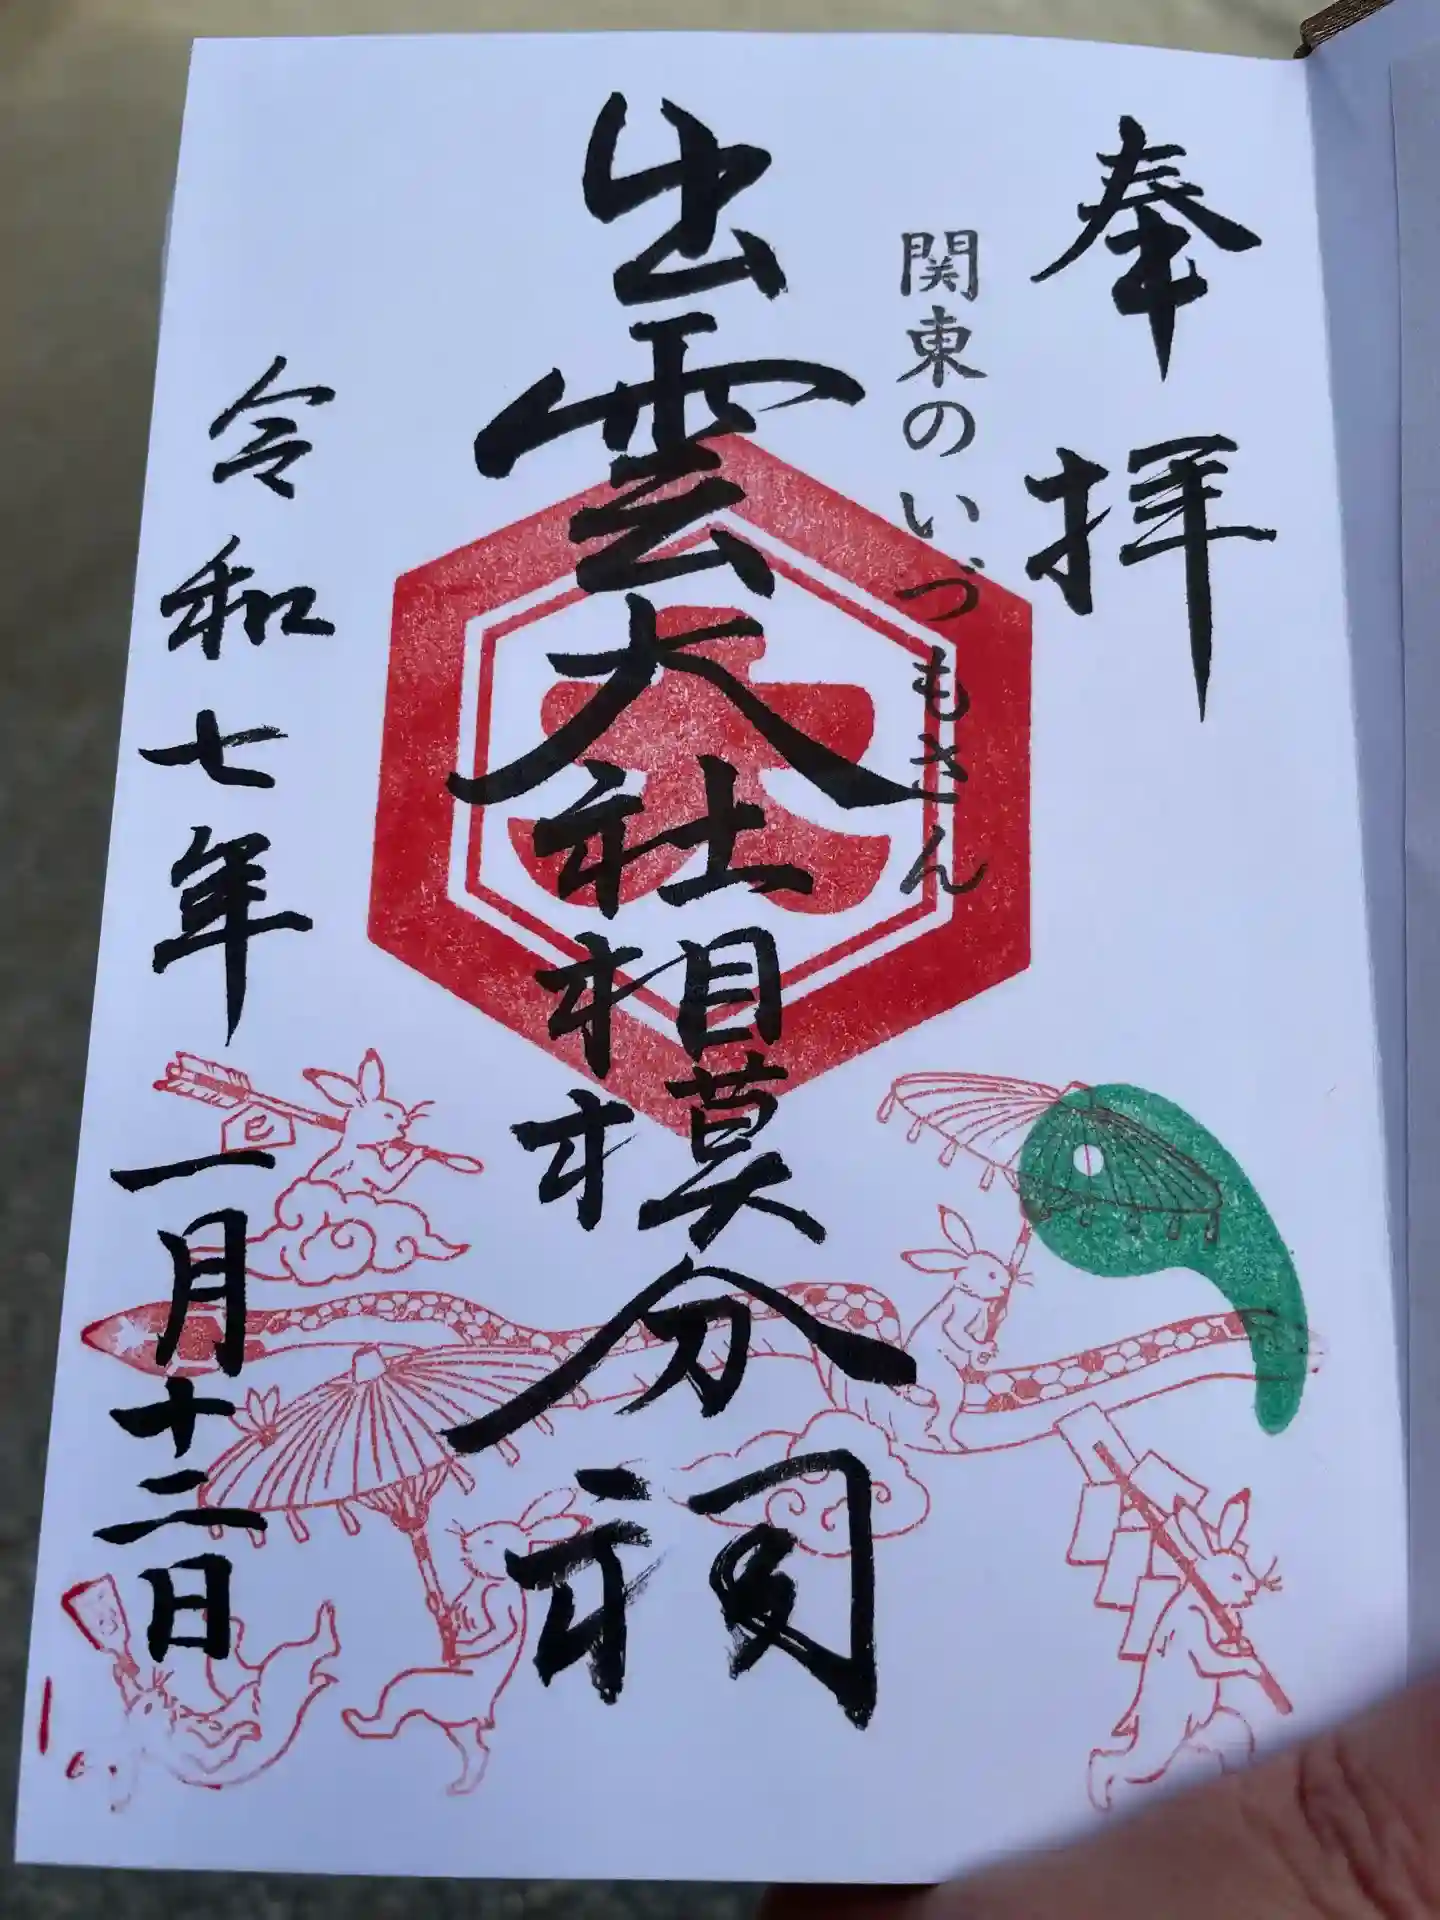 奉拝
関東のいづもさん
出雲大社相模分祠
令和七年一月十二日
大